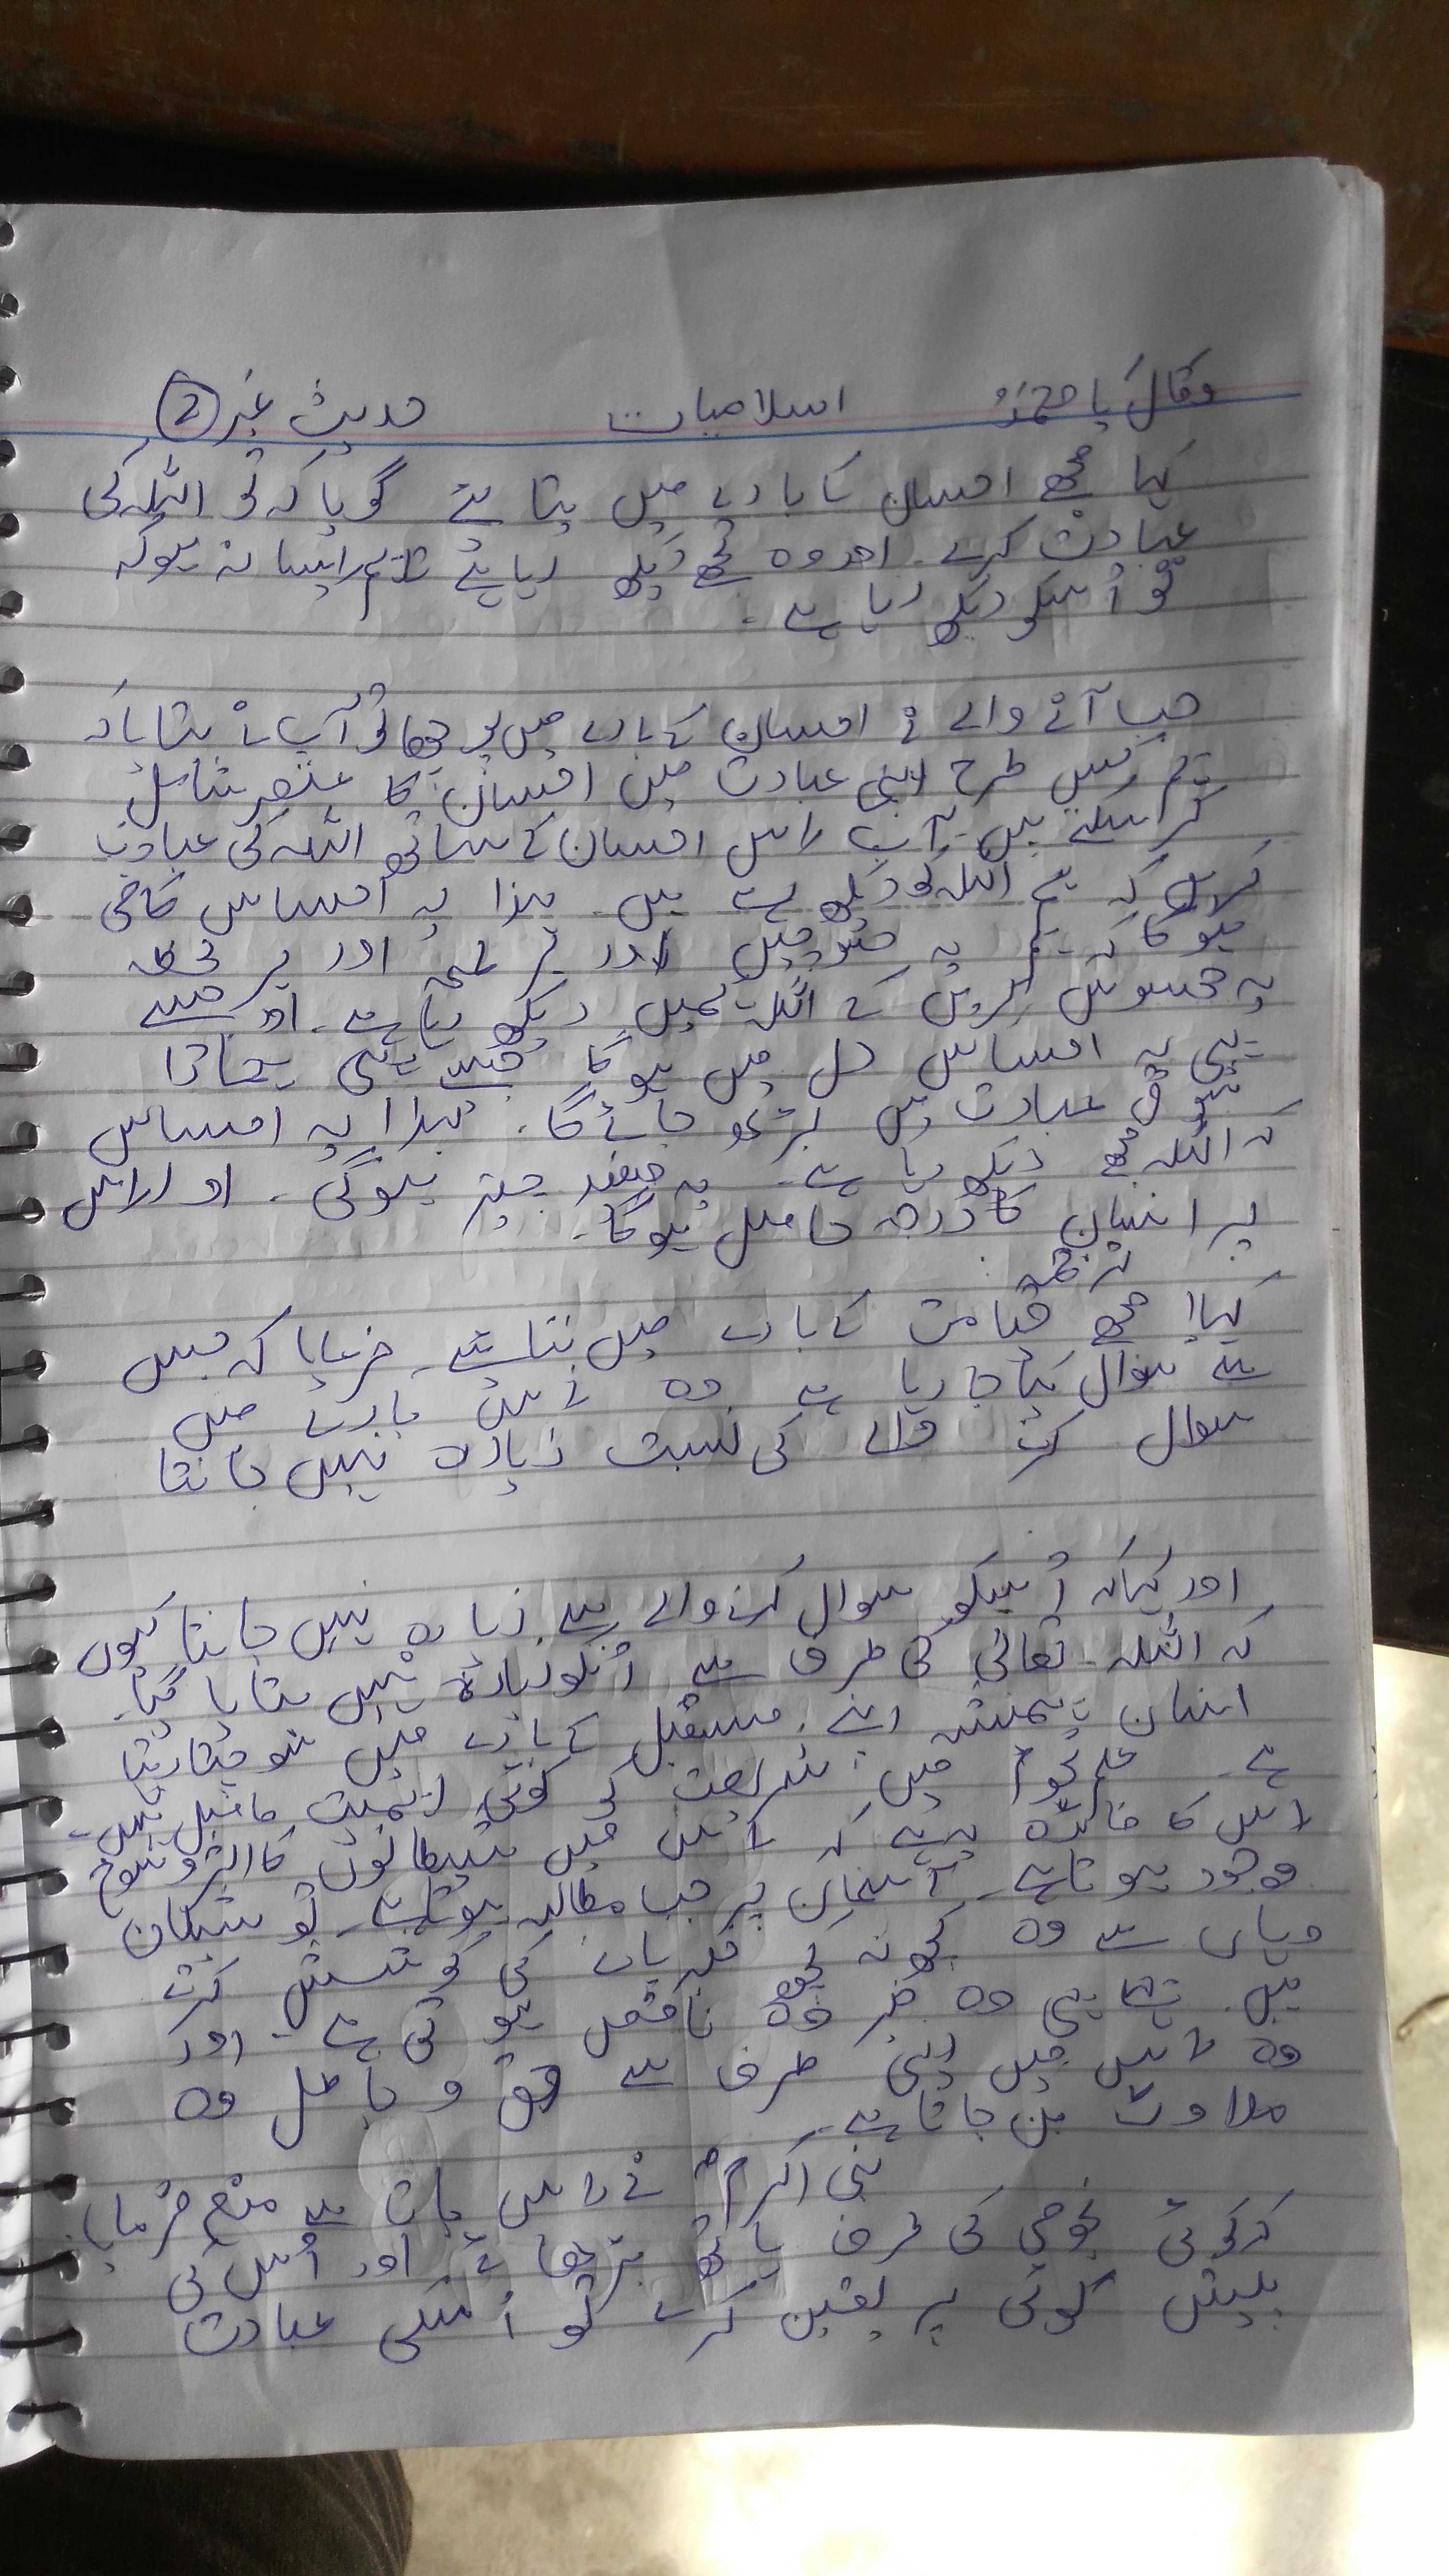 وقال یا محمدُ اسلامیات حدیث نمبر 2
کہا مجھے احسان کے بارے میں بتائیے گویا کہ تو اللہ کی
عبادت کرے۔ اور وہ تجھے دیکھ رہا ہے ایسا نہ ہو کہ
تو اُسکو دیکھ رہا ہے۔
جب آنے والے نے احسان کے بارے میں پوچھا تو آپ نے بتایا کہ
تم کس طرح اپنی عبادت میں احسان کا عنصر شامل
کر سکتے ہیں۔ آپ اس احسان کے ساتھ اللہ کی عبادت
کریں کہ ہم اللہ کو دیکھ رہے ہیں۔ لہذا یہ احساس کافی
ہوگا کہ ہم یہ سوچیں اور ہر لمحہ اور ہر لحظہ
یہ محسوس کریں کے اللہ ہمیں دیکھ رہا ہے۔ اور جیسے
ہی یہ احساس دل میں ہوگا جیسے ہی ہمارا
شوق عبادت میں بڑھ جائے گا۔ لہذا یہ احساس
کہ اللہ مجھے دیکھ رہا ہے۔ یہ مفید چیز ہوگی۔ اور اس
پر احسان کا درجہ حاصل ہوگا۔
ترجمہ:
کہا! مجھے قیامت کے بارے میں بتائیے۔ فرمایا کہ جس
سے سوال کیا جا رہا ہے وہ اس بارے میں
سوال کرنے والے کی نسبت زیادہ نہیں جانتا
اور کہا کہ اُسکو سوال کرنے والے سے زیادہ نہیں جانتا کیوں
کہ اللہ تعالیٰ کی طرف سے اُنکو زیادہ نہیں بتایا گیا۔
انسان ہمیشہ اپنے مستقبل کے بارے میں سوچتا رہتا
ہے۔ علم نجوم میں شریعت کو کوئی اہمیت حاصل نہیں۔
اس کا فائدہ یہ ہے کہ اس میں شیطانوں کا اثر و رسوخ
موجود ہوتا ہے۔ آسمان پر جب مطالبہ ہوتا ہے۔ تو شیطان
وہاں سے وہ کچھ نہ کچھ خبر پانے کی کوشش کرتے
ہیں۔ وہ خبر وہ ناقص ہوتی ہے۔ اور
وہ اس میں اپنی طرف سے حق و باطل وہ
ملاوٹ بن جاتا ہے۔
نبی اکرمؐ نے اس بات سے منع فرمایا۔
کہ کوئی نجومی کی طرف ہاتھ بڑھائے اور اُس کی
پیش گوئی پر یقین کرے تو اُسکی عبادت